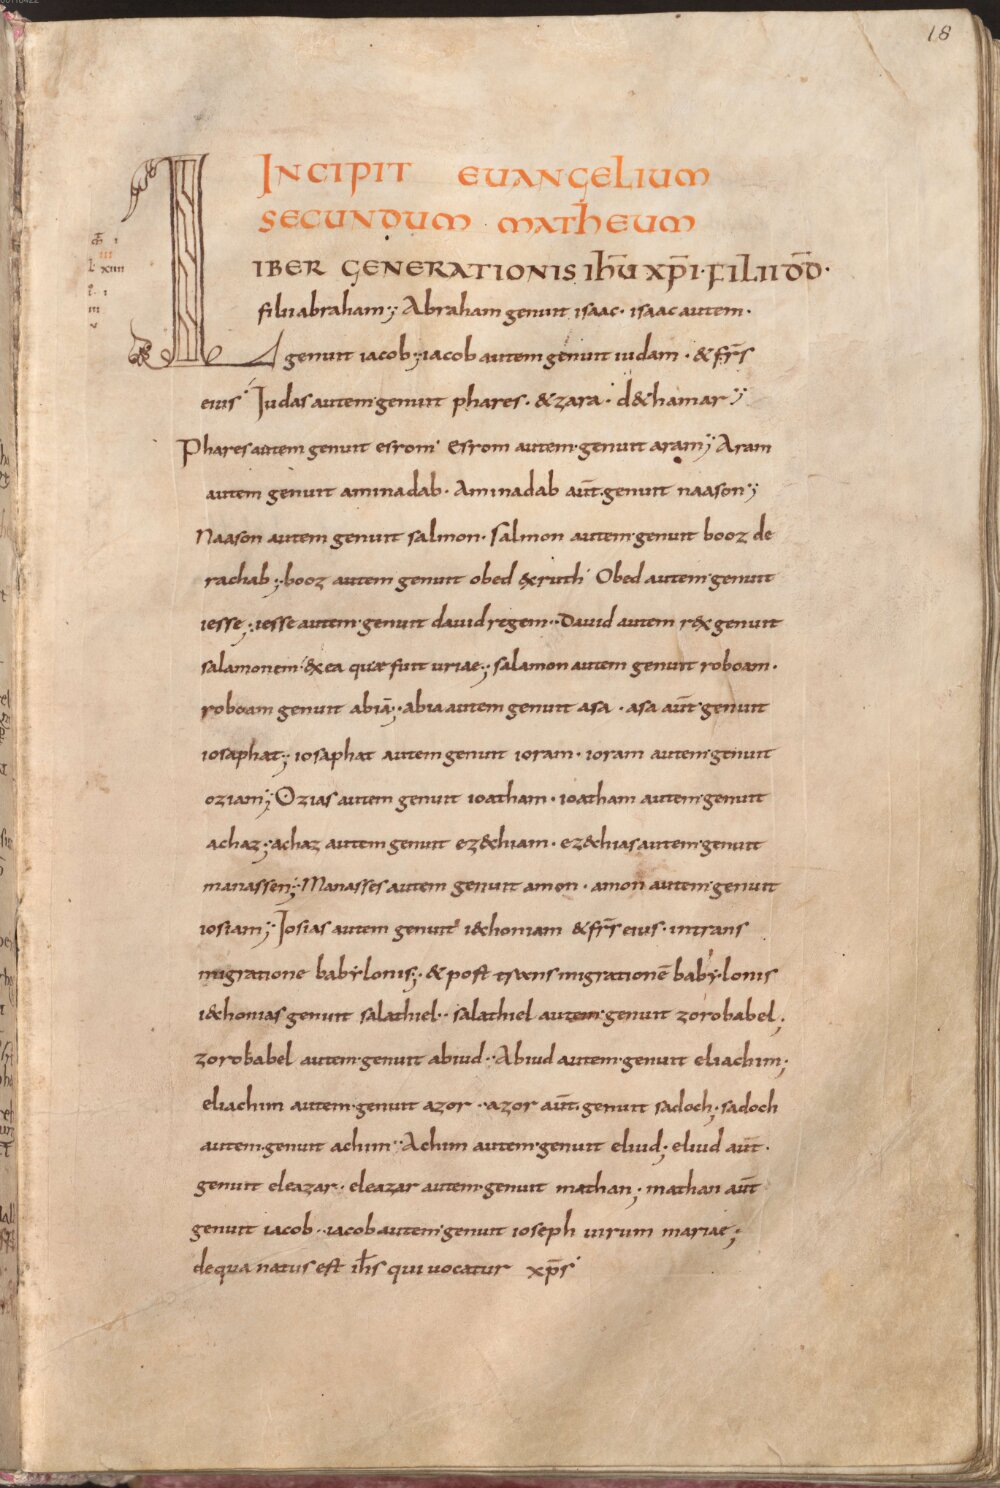 18
INCIPIT EUANGELIUM
SECUNDUM MATHEUM
LIBER GENERATIONIS IHŪ XP̄I· FILII DD̄·
filii abraham; Abraham genuit isaac· isaac autem·
genuit iacob; iacob autem genuit iudam· & fr̄s
eius· Iudas autem genuit phares· & zara· d& hamar;
Phares autem genuit esrom· Esrom autem genuit aram; Aram
autem genuit aminadab· Aminadab aūt genuit naason;
Naason autem genuit salmon· salmon autem genuit booz de
rachab; booz autem genuit obed & ruth· Obed autem genuit
iesse; iesse autem genuit dauid regem· Dauid autem rex genuit
salamonem· ex ea quae fuit uriae; salamon autem genuit roboam·
roboam genuit abiā; abia autem genuit asa· asa aūt genuit
iosaphat; iosaphat autem genuit ioram· ioram autem genuit
oziam; Ozias autem genuit ioatham· ioatham autem genuit
achaz; achaz autem genuit ez&chiam· ez&chias autem genuit
manassen; Manasses autem genuit amon· amon autem genuit
iosiam; Iosias autem genuit i&choniam & fr̄s eius· in trans
migratione babylonis; & post transmigrationē babylonis
i&chonias genuit salathiel· salathiel autem genuit zorobabel;
zorobabel autem genuit abiud· Abiud autem genuit eliachim;
eliachim autem genuit azor· azor aūt genuit sadoch; sadoch
autem genuit achim· Achim autem genuit eliud; eliud aūt·
genuit eleazar· eleazar autem genuit mathan; mathan aūt
genuit iacob· iacob autem genuit ioseph uirum mariae;
de qua natus est ih̄s qui uocatur xp̄s